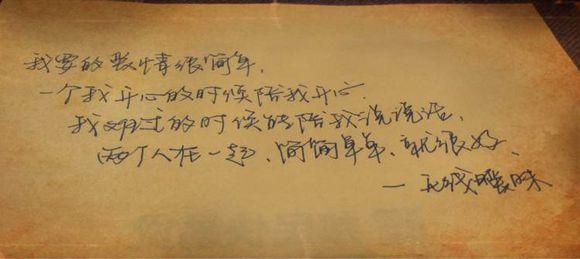 我要的爱情很简单，
一个我开心的时候陪我开心
我难过的时候能陪我说说话，
两个人在一起，简简单单、就很好、
— 无线暧昧